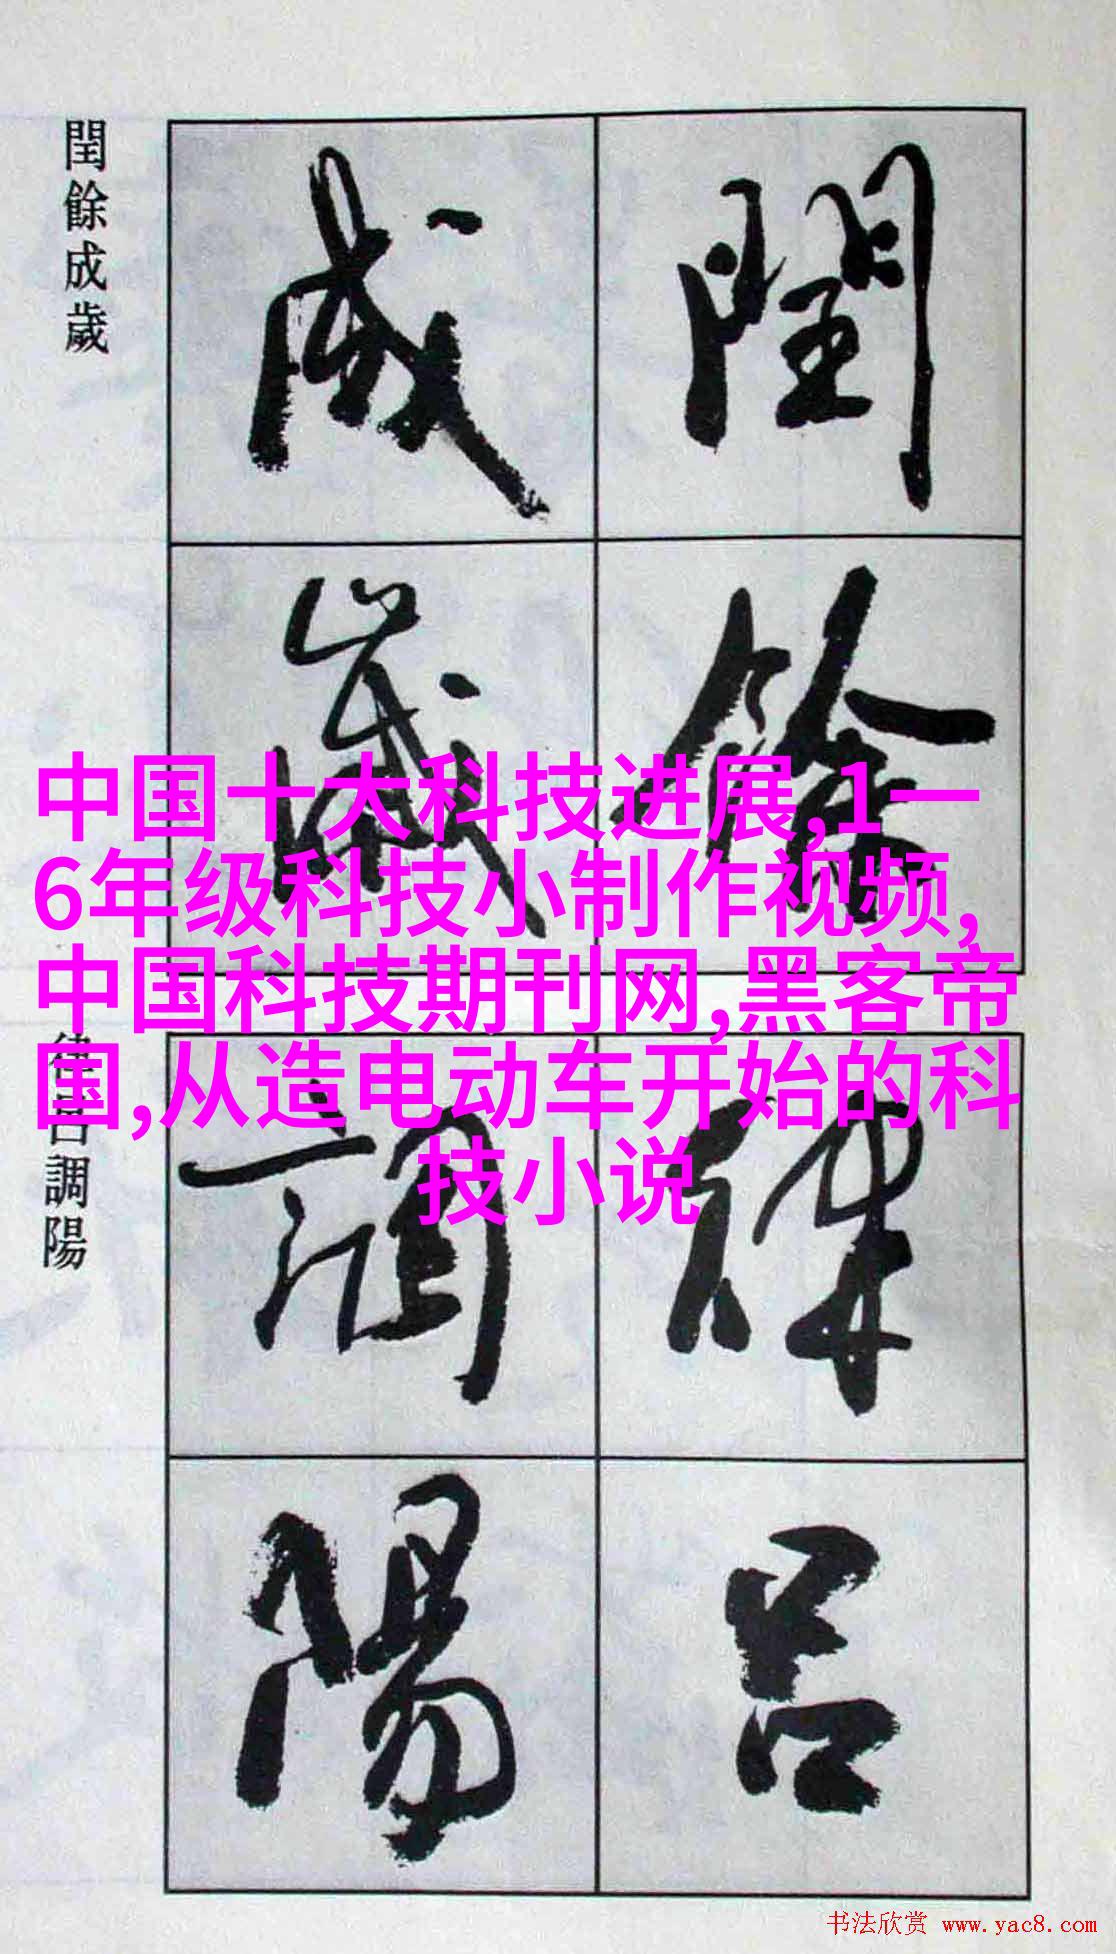 閏餘成歲
閏餘
成歲
中国十大科技进展,1一
6年级科技小制作视频,
中国科技期刊网,黑客帝
国,从造电动车开始的科
技小说
律吕調陽
律吕
調陽
书法欣赏 www.yac8.com